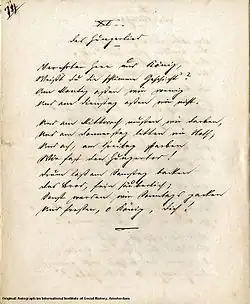 Das Hungerlied
Verehrter Herr und König,
Weißt du die schlimme Geschicht?
Am Montag aßen wir wenig
Und am Dienstag aßen wir nicht.
Und am Mittwoch mußten wir darben,
Und am Donnerstag litten wir Noth,
Und ach, am Freitag starben
Wir fast den Hungertod!
Drum laß am Samstag backen
Das Brod, fein säuberlich,
Sonst werden wir Sonntags packen
Und fressen, o König, dich!
Original: Autograph im International Institute of Social History, Amsterdam